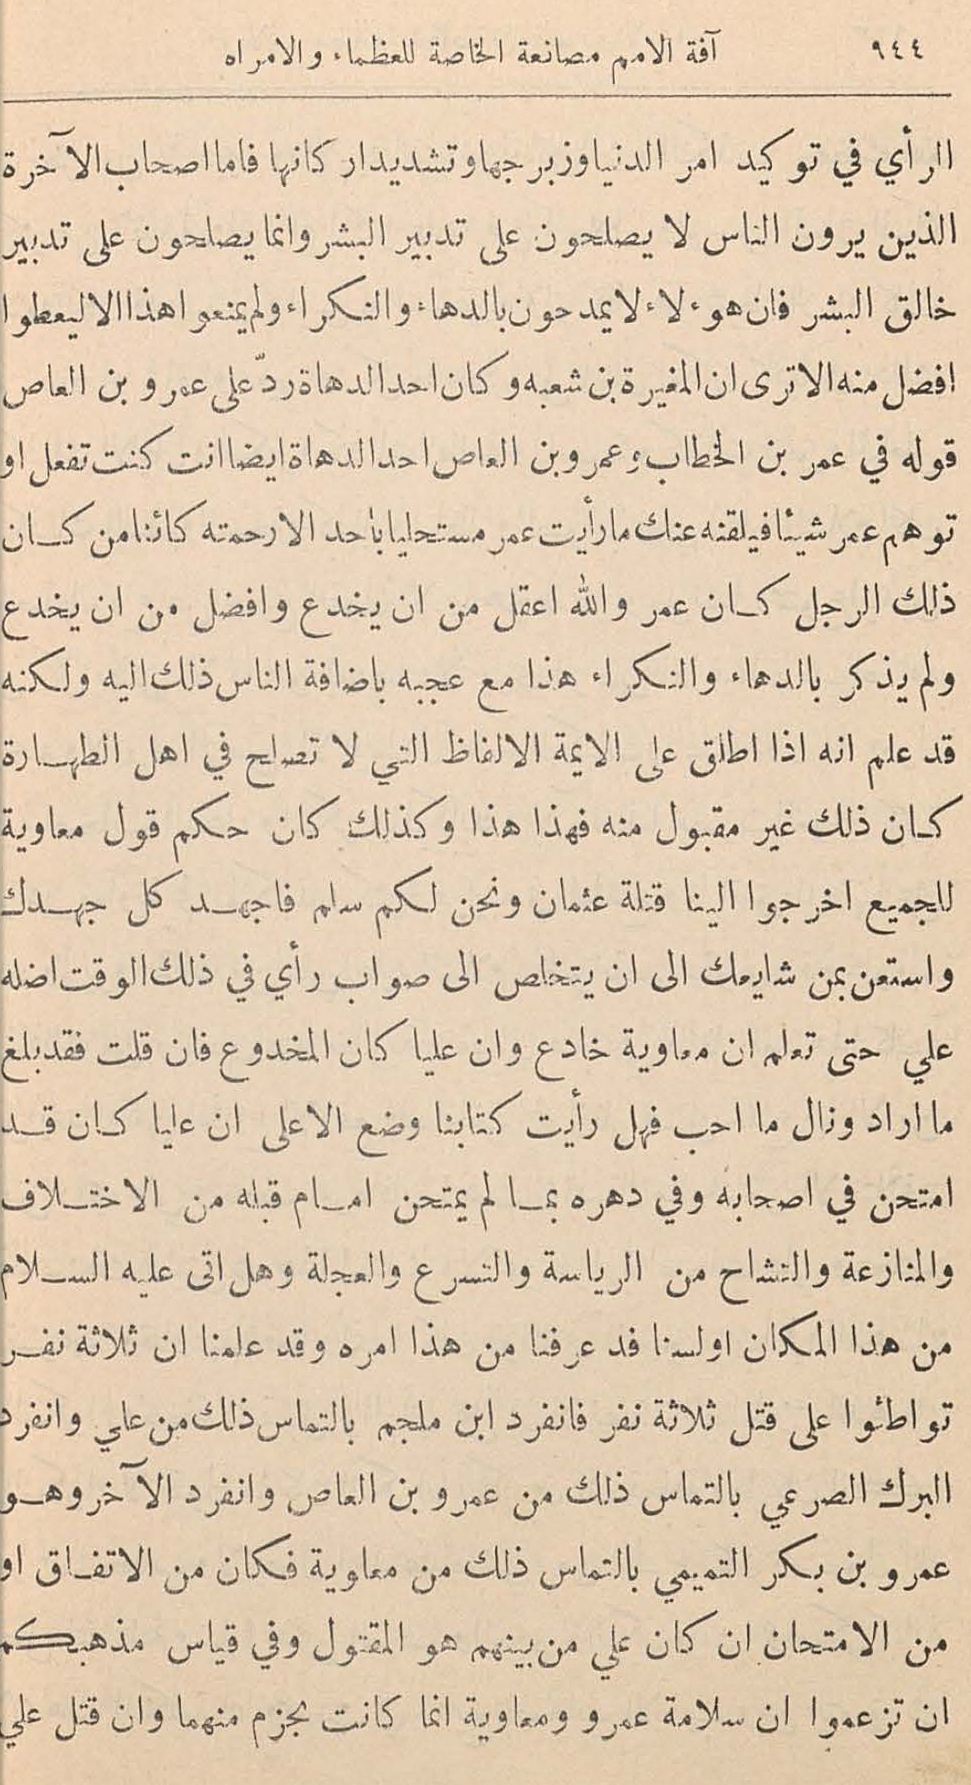 ٩٤٤ آفة الامم مصانعة الخاصة للعظماء والامراه
الرأي في توكيد امر الدنيا وزبرجها وتشديد اركانها فاما اصحاب الآخرة
الذين يرون الناس لا يصلحون على تدبير البشر وانما يصلحون على تدبير
خالق البشر فان هوءلاء لا يمدحون بالدهاء والنكراء ولم يمنعوا هذا الا ليعطوا
افضل منه الا ترى ان المغيرة بن شعبه وكان احد الدهاة ردّ على عمرو بن العاص
قوله في عمر بن الخطاب وعمرو بن العاص احد الدهاة ايضا انت كنت تفعل او
توهم عمر شيئا فيلقنه عنك ما رأيت عمر مستحليا بأحد الا رحمته كائنا من كان
ذلك الرجل كان عمر والله اعقل من ان يخدع وافضل من ان يخدع
ولم يذكر بالدهاء والنكراء هذا مع عجبه باضافة الناس ذلك اليه ولكنه
قد علم انه اذا اطلق على الايمة الالفاظ التي لا تصلح في اهل الطهارة
كان ذلك غير مقبول منه فهذا هذا وكذلك كان حكم قول معاوية
للجميع اخرجوا الينا قتلة عثمان ونحن لكم سلم فاجهد كل جهدك
واستعن بمن شايعك الى ان يتخلص الى صواب رأي في ذلك الوقت اضله
علي حتى تعلم ان معاوية خادع وان عليا كان المخدوع فان قلت فقد بلغ
ما اراد ونال ما احب فهل رأيت كتابنا وضع الا على ان عليا كان قد
امتحن في اصحابه وفي دهره بما لم يمتحن امام قبله من الاختلاف
والمنازعة والتشاح من الرياسة والتسرع والعجلة وهل اتى عليه السلام
من هذا المكان اولسنا فد عرفنا من هذا امره وقد علمنا ان ثلاثة نفر
تواطئوا على قتل ثلاثة نفر فانفرد ابن ملجم بالتماس ذلك من علي وانفرد
البرك الصرعي بالتماس ذلك من عمرو بن العاص وانفرد الآخر وهو
عمرو بن بكر التميمي بالتماس ذلك من معاوية فكان من الاتفاق او
من الامتحان ان كان علي من بينهم هو المقتول وفي قياس مذهبكم
ان تزعموا ان سلامة عمرو ومعاوية انما كانت بجزم منهما وان قتل علي